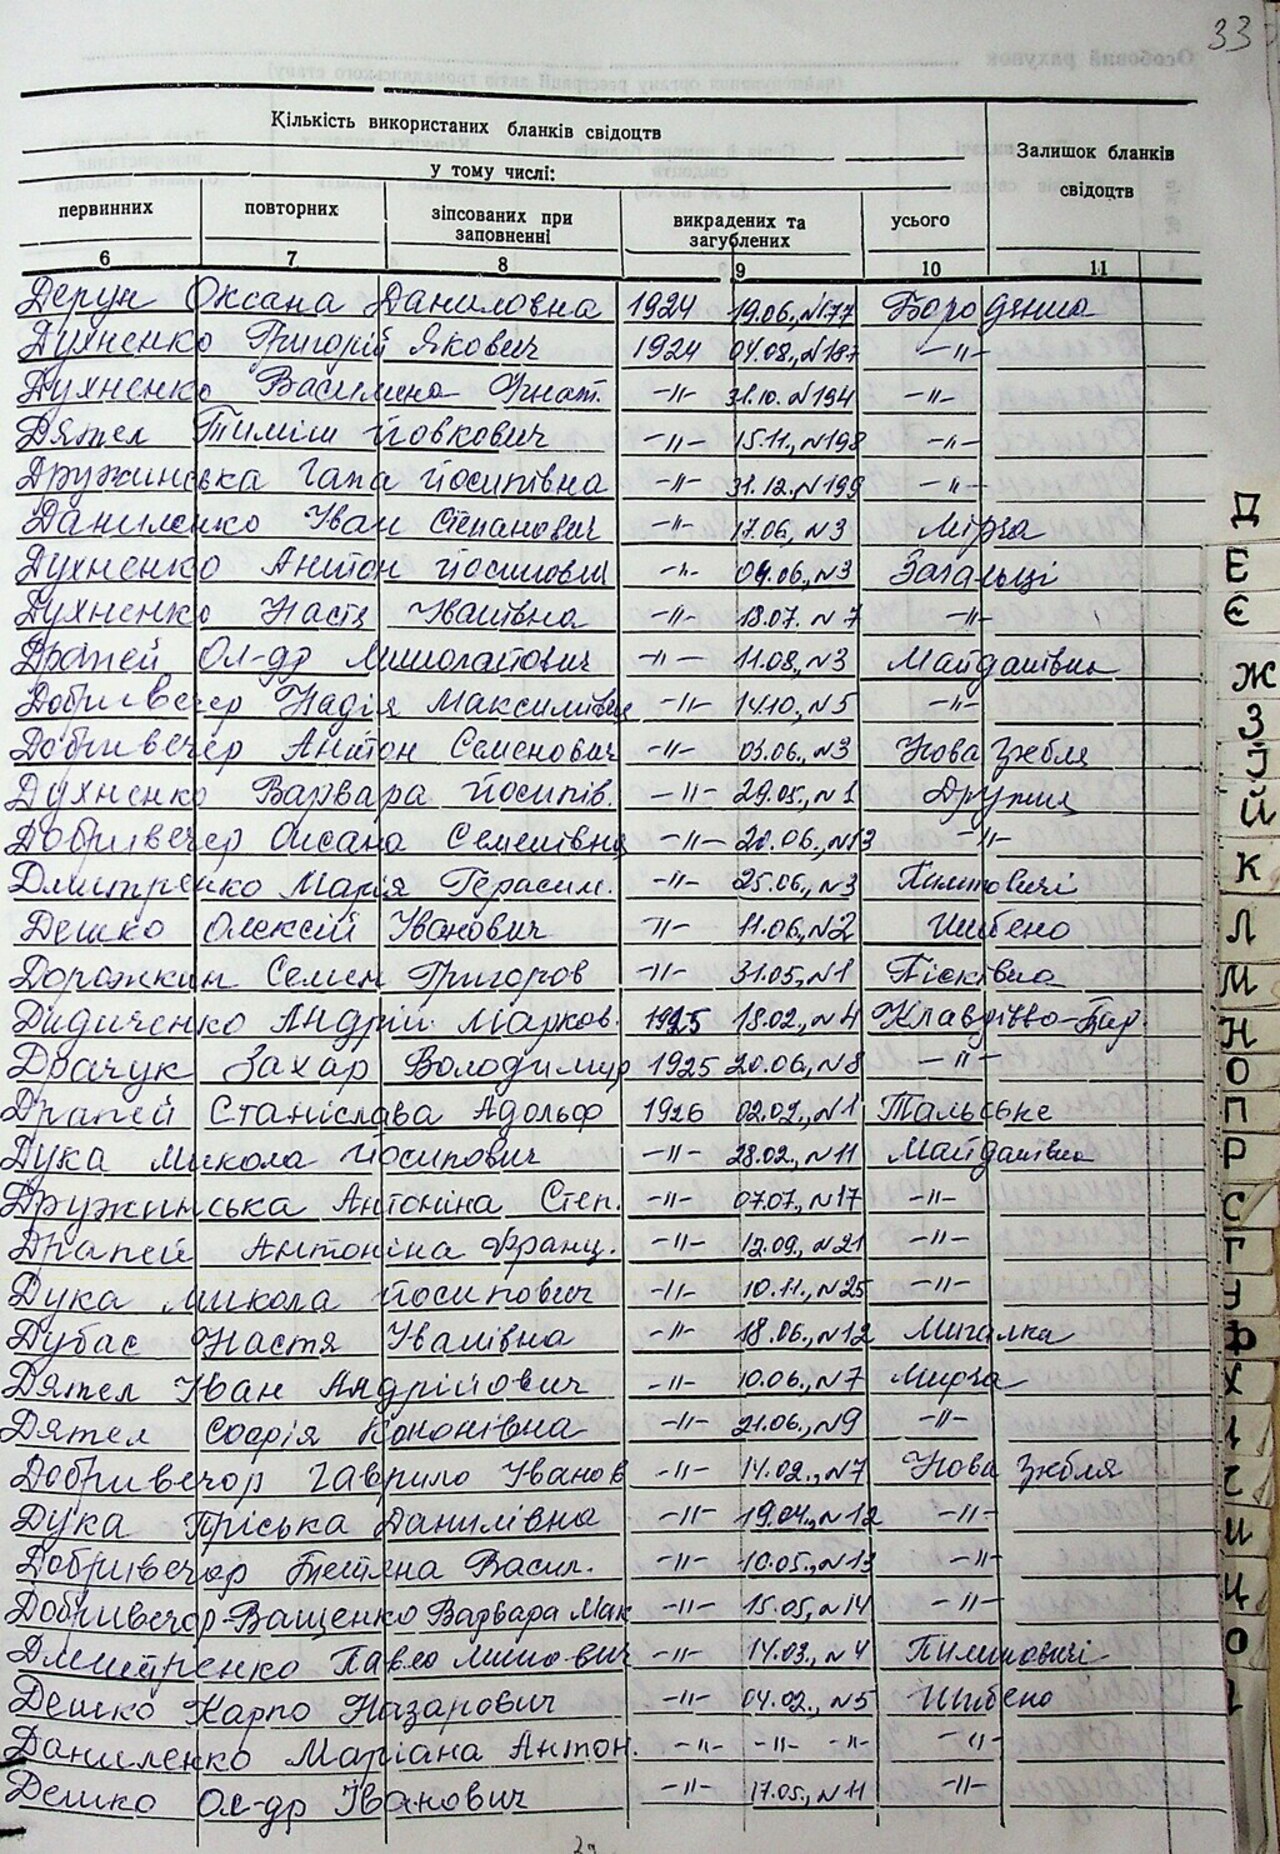 33
Кількість використаних бланків свідоцтв
Залишок бланків свідоцтв
у тому числі:
первинних повторних зіпсованих при заповненні викрадених та загублених усього
6 7 8 9 10 11
Дерун Оксана Даниловна 1924 19.06., N177 Бородянка
Духненко Григорій Якович 1924 04.08., N187 -"-
Духненко Василина Гнат. -"- 31.10. N194 -"-
Дятел Тиміш Йовкович -"- 15.11., N198 -"-
Дружинська Гапа Йосипівна -"- 31.12., N199 -"-
Даниленко Іван Степанович -"- 17.06, N3 Мірча
Духненко Антон Йосипович -"- 04.06., N3 Загальці
Духненко Настя Іванівна -"- 18.07. N7 -"-
Драпей Ол-др -"- 11.08, N3 Майданівка
Добривечер Надія Максимівна -"- 14.10., N5 -"-
Добривечер Антон Семенович -"- 03.06., N3 Нова Гребля
Духненко Варвара Йосипів. -"- 29.05., N1 Дружня
Добривечер Оксана Семенівна -"- 20.06., N13 -"-
Дмитренко Марія Герасим. -"- 25.06., N3 Пилиповичі
Дешко Олексій Іванович -"- 11.06., N2 Шибено
Дорожкин Семен Григоров -"- 31.05., N1 Пісківка
Дидиченко Андрій Марков. 1925 18.02., N4 Клавдієво-Тар.
Драчук Захар Володимир 1925 20.06., N8 -"-
Драпей Станіслава Адольф 1926 02.02., N1 Тальське
Дука Микола Йосипович -"- 28.02., N11 Майданівка
Дружинська Антоніна Степ. -"- 07.07., N17 -"-
Драпей Антоніна Франц. -"- 12.09., N21 -"-
Дука Микола Йосипович -"- 10.11., N25 -"-
Дубас Настя Іванівна -"- 18.06., N12 Мигалка
Дятел Іван Андрійович -"- 10.06., N7 Мирча
Дятел Софія Кононівна -"- 21.06., N9 -"-
Добривечор Гаврило Іванов -"- 14.02., N7 Нова Гребля
Дука Пріська Данилівна -"- 19.04., N12 -"-
Добривечор Тетяна Васил. -"- 10.05., N13 -"-
Добривечор-Ващенко Варвара Мак -"- 15.05, N14 -"-
Дмитренко Павло -"- 14.03., N4 Пилиповичі
Дешко Карпо Назарович -"- 04.02., N5 Шибено
Даниленко Маріана Антон. -"- -"- -"- -"-
Дешко Ол-др Іванович -"- 17.05., N11 -"-
Д
Е
Є
Ж
З
І
Й
К
Л
М
Н
О
П
Р
С
Т
У
Ф
Х